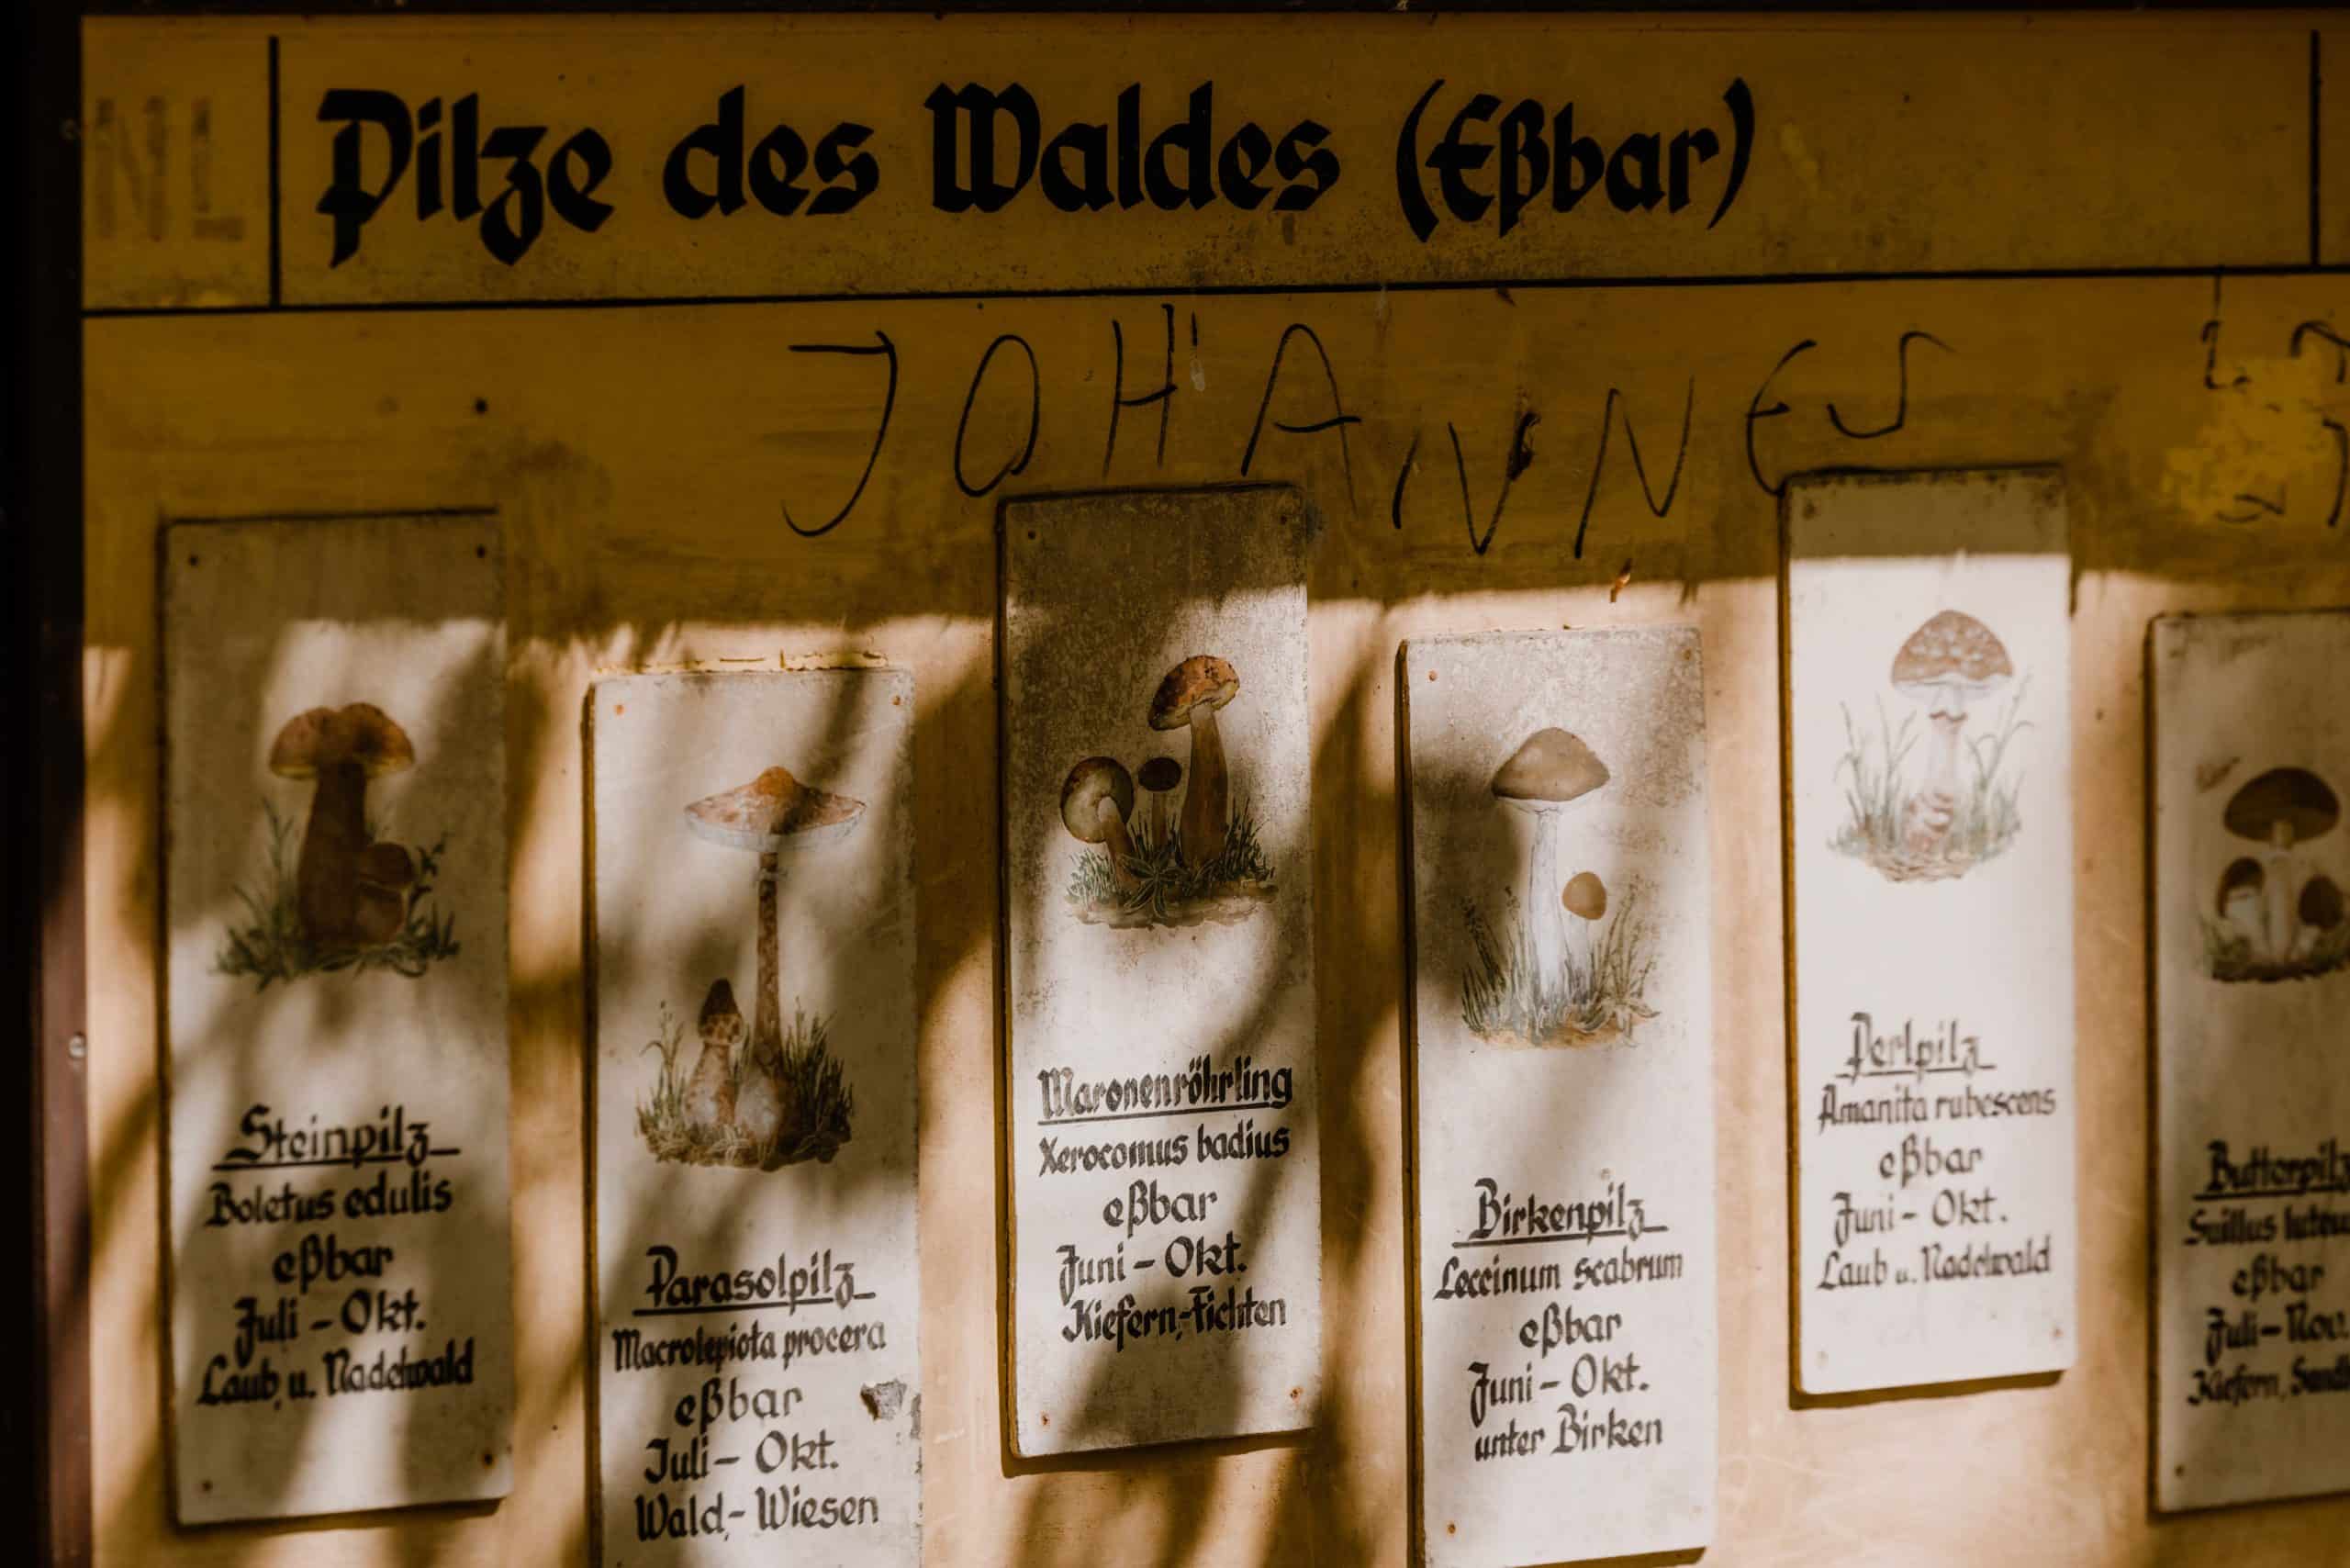 NL
Pilze des Waldes (Eßbar)
JOHANNES
Steinpilz
Boletus edulis
eßbar
Juli - Okt.
Laub u. Nadelwald
Parasolpilz
Macrolepiota procera
eßbar
Juli - Okt.
Wald,- Wiesen
Maronenröhrling
Xerocomus badius
eßbar
Juni - Okt.
Kiefern,-Fichten
Birkenpilz
Leccinum scabrum
eßbar
Juni - Okt.
unter Birken
Perlpilz
Amanita rubescens
eßbar
Juni - Okt.
Laub u. Nadelwald
Butterpilz
Suillus
eßbar
Juli - Nov.
Kiefern,